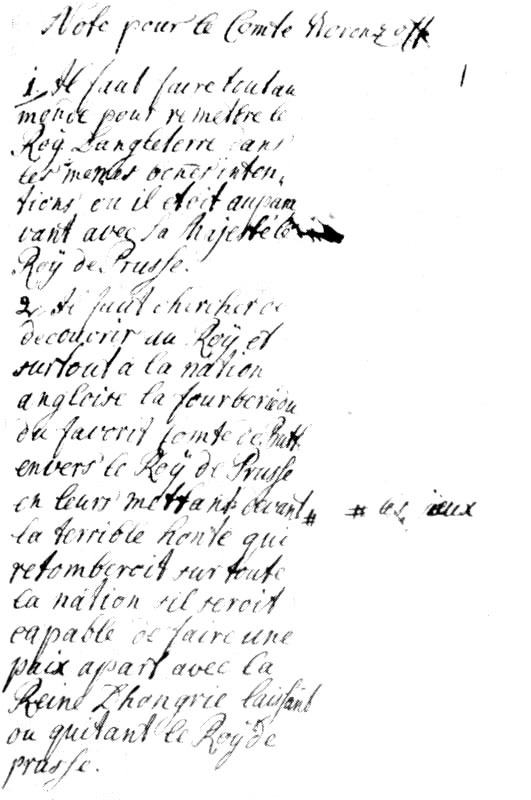 Note pour le Comte Woronzoff
1
1. Il faut faire tout au
monde pour remettre le
Roÿ Dangleterre dans
les memes bones inten,
tions ou il etoit aupara
vant avec Sa Majesté le
Roÿ de Prusse.
2. Il faut chercher de
decouvrir au Roÿ et
surtout a la nation
angloise la fourberie
du favorit comte de Butt
envers le Roÿ de Prusse
en leurs mettant devant # # les ieux
la terrible honte qui
retomberoit sur toute
la nation sil seroit
capable de faire une
paix apart avec la
Reine D'hongrie laissant
ou quitant le Roÿ de
prusse.